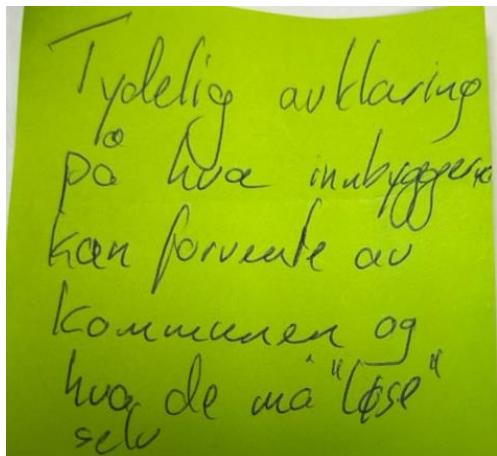 Tydelig avklaring
på hva innbyggerne
kan forvente av
kommunen og
hva de må "løse"
selv